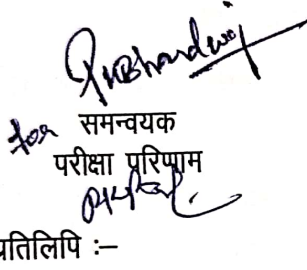 for समन्वयक
परीक्षा परिणाम
प्रतिलिपि :–